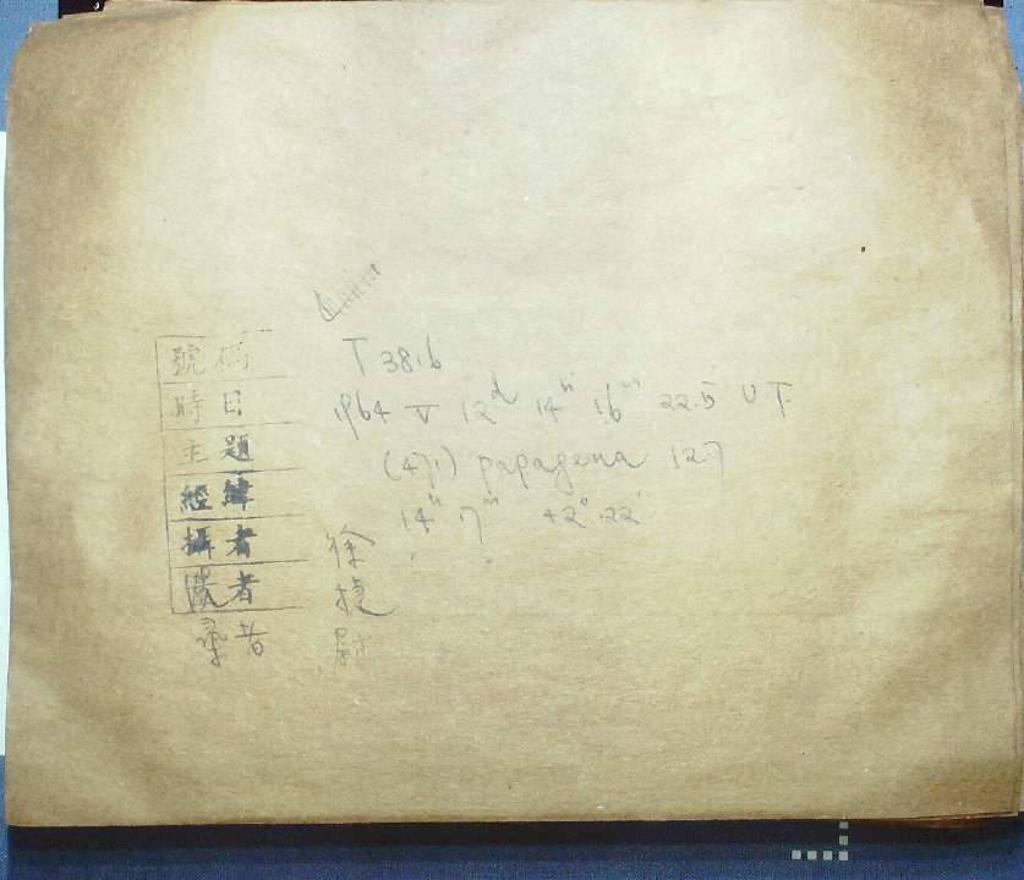 號碼 T 3816
時日 1964 V 12d 14h 16m 22.5 UT
主題 (471) papagena 12.7
經緯 14h 7m +2° 22'
攝者 徐
者 捷
录者 尉